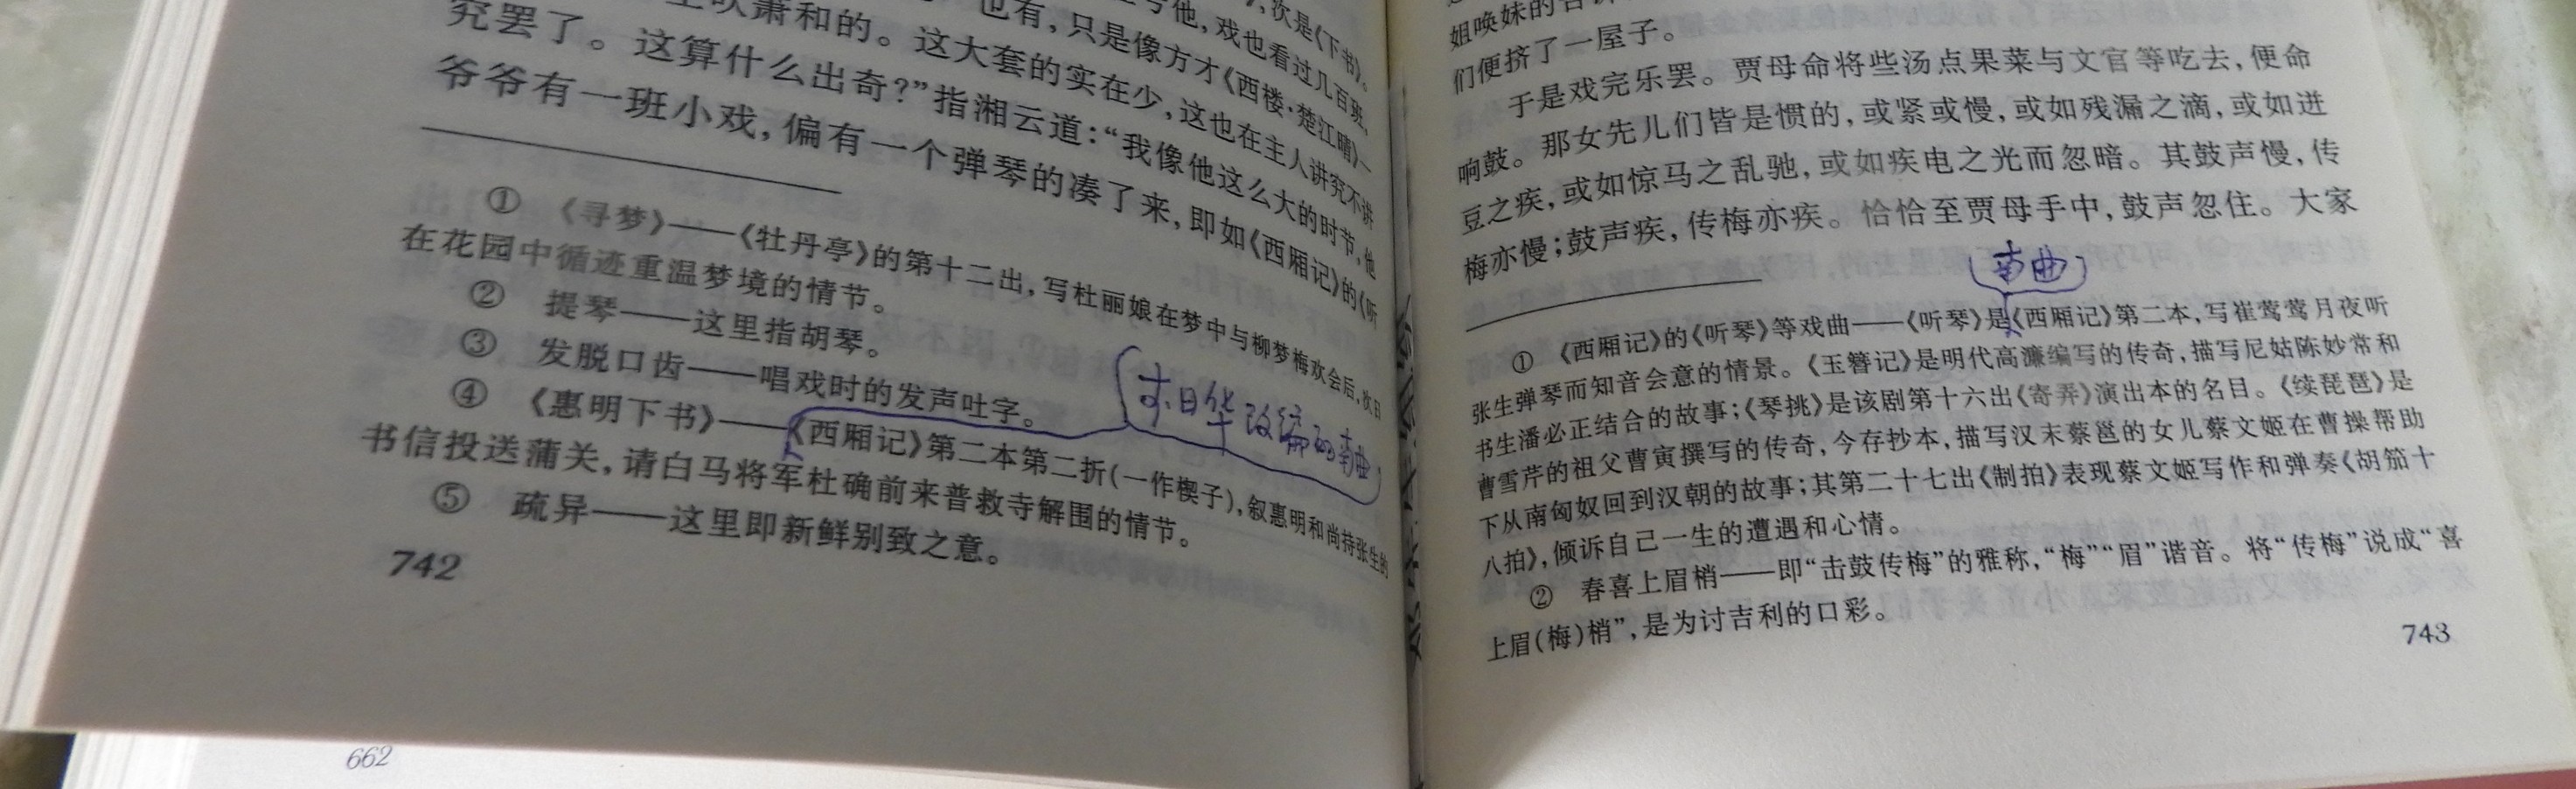 亏他，戏也看过几百班，
也有，只是像方才《西楼·楚江晴》一
吹萧和的。这大套的实在少，这也在主人讲究不讲
究罢了。这算什么出奇？”指湘云道：“我像他这么大的时节，他
爷爷有一班小戏，偏有一个弹琴的凑了来，即如《西厢记》的《听
① 《寻梦》——《牡丹亭》的第十二出，写杜丽娘在梦中与柳梦梅欢会后，次日
在花园中循迹重温梦境的情节。
② 提琴——这里指胡琴。
③ 发脱口齿——唱戏时的发声吐字。
日华改编的南曲
④ 《惠明下书》——《西厢记》第二本第二折（一作楔子），叙惠明和尚持张生的
书信投送蒲关，请白马将军杜确前来普救寺解围的情节。
⑤ 疏异——这里即新鲜别致之意。
742
662
姐唤妹的
们便挤了一屋子。
于是戏完乐罢。贾母命将些汤点果菜与文官等吃去，便命
响鼓。那女先儿们皆是惯的，或紧或慢，或如残漏之滴，或如迸
豆之疾，或如惊马之乱驰，或如疾电之光而忽暗。其鼓声慢，传
梅亦慢；鼓声疾，传梅亦疾。恰恰至贾母手中，鼓声忽住。大家
南曲
① 《西厢记》的《听琴》等戏曲——《听琴》是《西厢记》第二本，写崔莺莺月夜听
张生弹琴而知音会意的情景。《玉簪记》是明代高濂编写的传奇，描写尼姑陈妙常和
书生潘必正结合的故事；《琴挑》是该剧第十六出《寄弄》演出本的名目。《续琵琶》是
曹雪芹的祖父曹寅撰写的传奇，今存抄本，描写汉末蔡邕的女儿蔡文姬在曹操帮助
下从南匈奴回到汉朝的故事；其第二十七出《制拍》表现蔡文姬写作和弹奏《胡笳十
八拍》，倾诉自己一生的遭遇和心情。
② 春喜上眉梢——即“击鼓传梅”的雅称，“梅”“眉”谐音。将“传梅”说成“喜
上眉（梅）梢”，是为讨吉利的口彩。
743